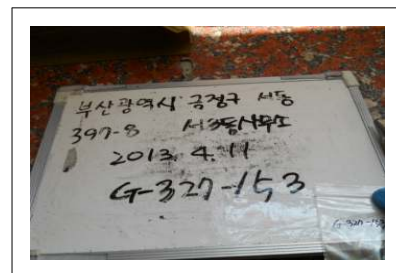 부산광역시 금정구 서동
397-8 서3동사무소
2013. 4. 11
G-327-153
G-327-153